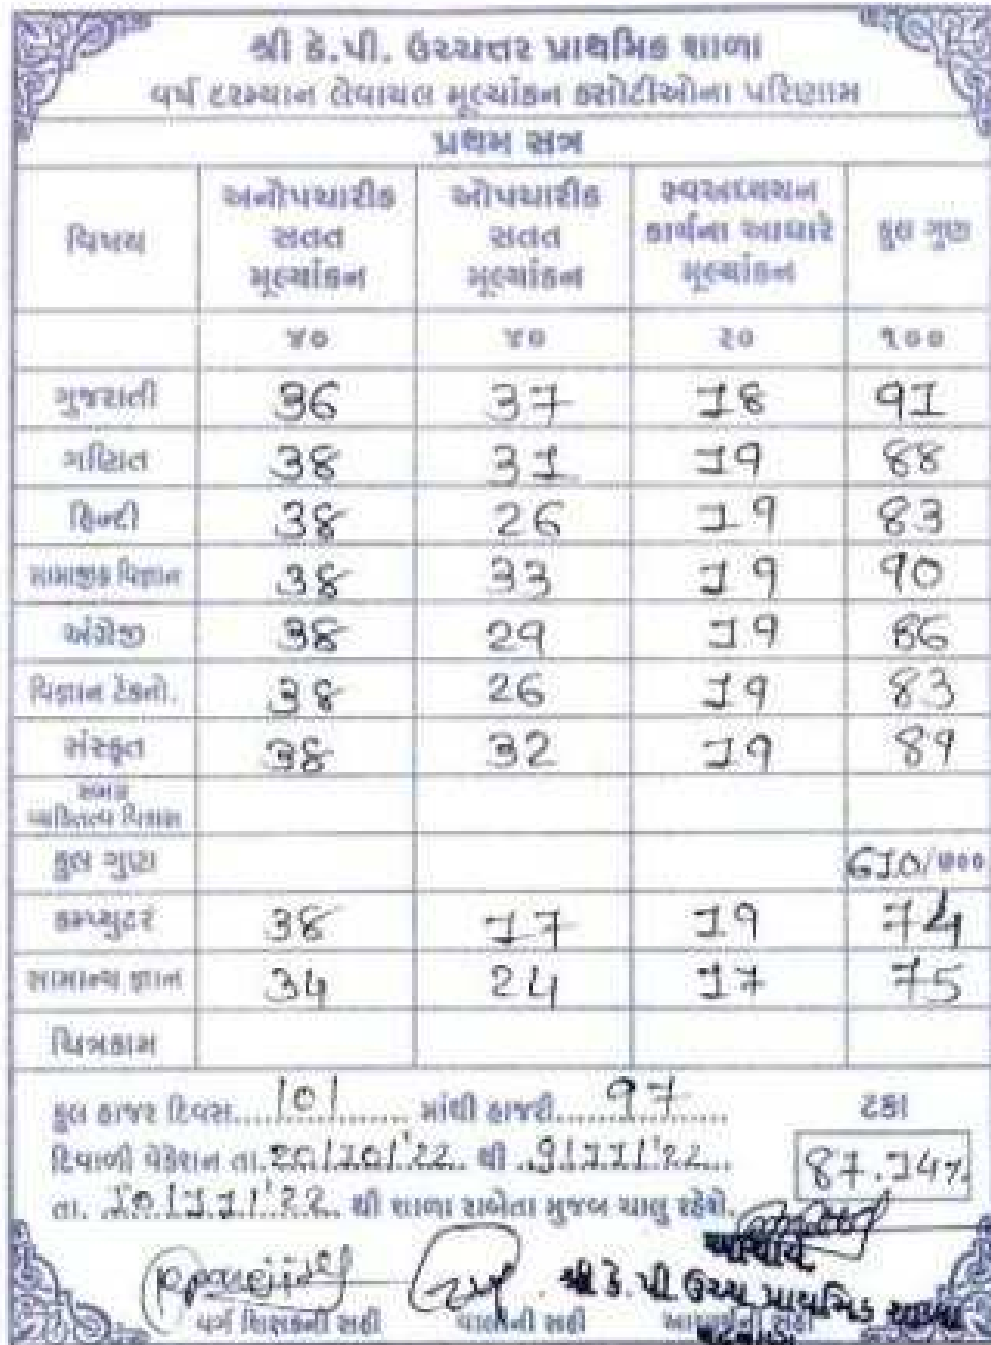 શ્રી કે.પી. ઉચ્ચત્તર પ્રાથમિક શાળા
વર્ષ દરમ્યાન લેવાયલ મૂલ્યાંકન કસોટીઓના પરિણામ
પ્રથમ સત્ર
વિષય અનૌપચારીક સતત મૂલ્યાંકન ઔપચારીક સતત મૂલ્યાંકન સ્વઅધ્યયન કાર્યના આધારે મૂલ્યાંકન કુલ ગુણ
૪૦ ૪૦ ૨૦ ૧૦૦
ગુજરાતી 36 37 18 91
ગણિત 38 31 19 88
હિન્દી 38 26 19 83
સામાજીક વિજ્ઞાન 38 33 19 90
અંગ્રેજી 38 29 19 86
વિજ્ઞાન ટેકનો. 38 26 19 83
સંસ્કૃત 38 32 19 89
વ્યક્તિત્વ વિકાસ
કુલ ગુણ 610/૭૦૦
કમ્પ્યુટર 38 17 19 74
સામાન્ય જ્ઞાન 34 24 17 75
ચિત્રકામ
કુલ હાજર દિવસ....101....... માંથી હાજરી....97....... ટકા
દિવાળી વેકેશન તા.20/10/'22.. થી ..9/11/'22... 87.14%
તા. ..10/11/'22.. થી શાળા રાબેતા મુજબ ચાલુ રહેશે.
આચાર્ય
શ્રી કે. પી ઉચ્ચ પ્રાથમિક શાળા
વર્ગ શિક્ષકની સહી વાલીની સહી આચાર્યની સહી